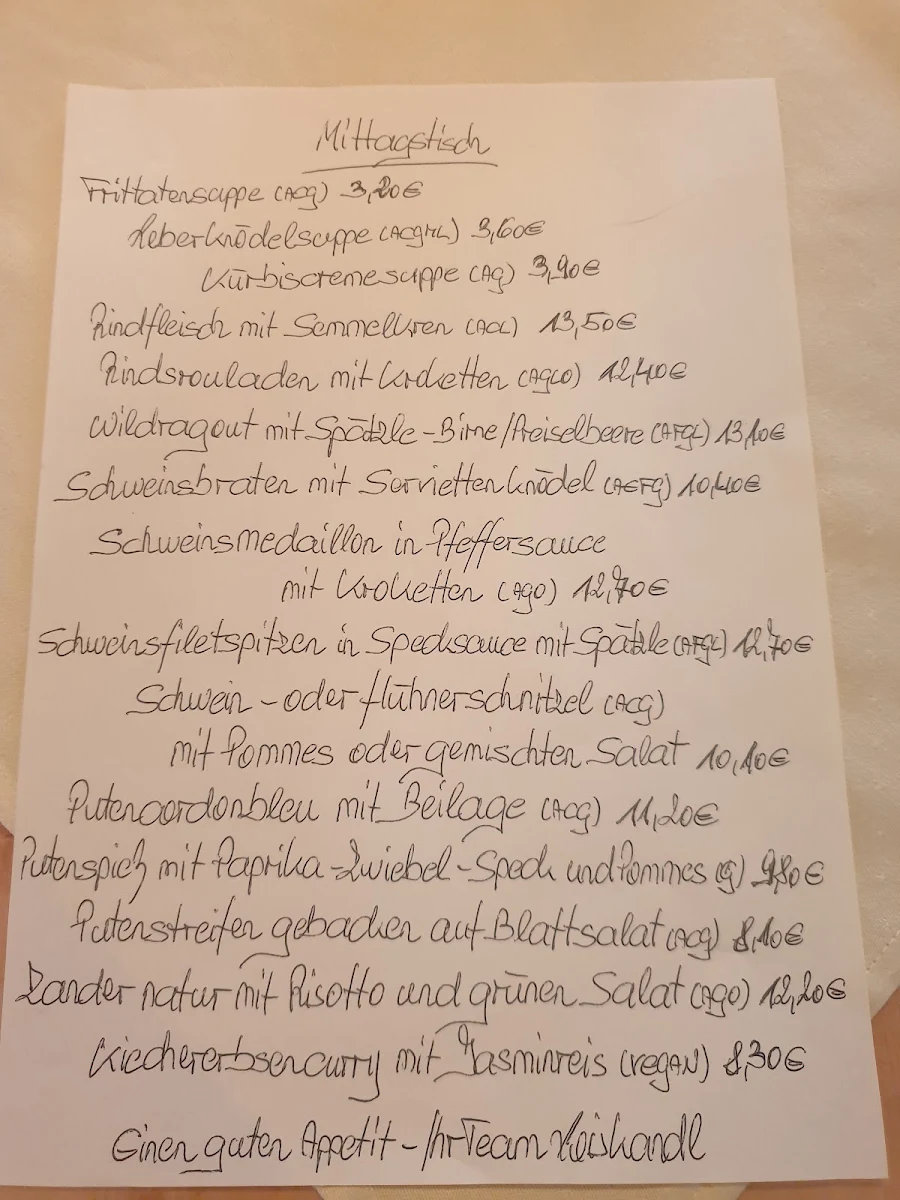 Mittagstisch
Frittatensuppe (ACG) 3,20€
Leberknödelsuppe (ACGHL) 3,60€
Kürbiscremesuppe (AG) 3,90€
Rindfleisch mit Semmelkren (ACL) 13,50€
Rindsrouladen mit Kroketten (AGLO) 12,40€
Wildragout mit Spätzle-Birne/Preiselbeere (AFGL) 13,10€
Schweinsbraten mit Serviettenknödel (AEFG) 10,40€
Schweinsmedaillon in Pfeffersauce
mit Kroketten (AGO) 12,70€
Schweinsfiletspitzen in Specksauce mit Spätzle (AFGL) 12,70€
Schwein-oder Hühnerschnitzel (ACG)
mit Pommes oder gemischten Salat 10,10€
Putencordonbleu mit Beilage (ACG) 11,20€
Putenspieß mit Paprika-Zwiebel-Speck und Pommes (G) 9,80€
Putenstreifen gebacken auf Blattsalat (ACG) 8,10€
Zander natur mit Risotto und grünen Salat (AGO) 12,20€
Kichererbsencurry mit Jasminreis (VEGAN) 8,30€
Einen guten Appetit - Ihr Team